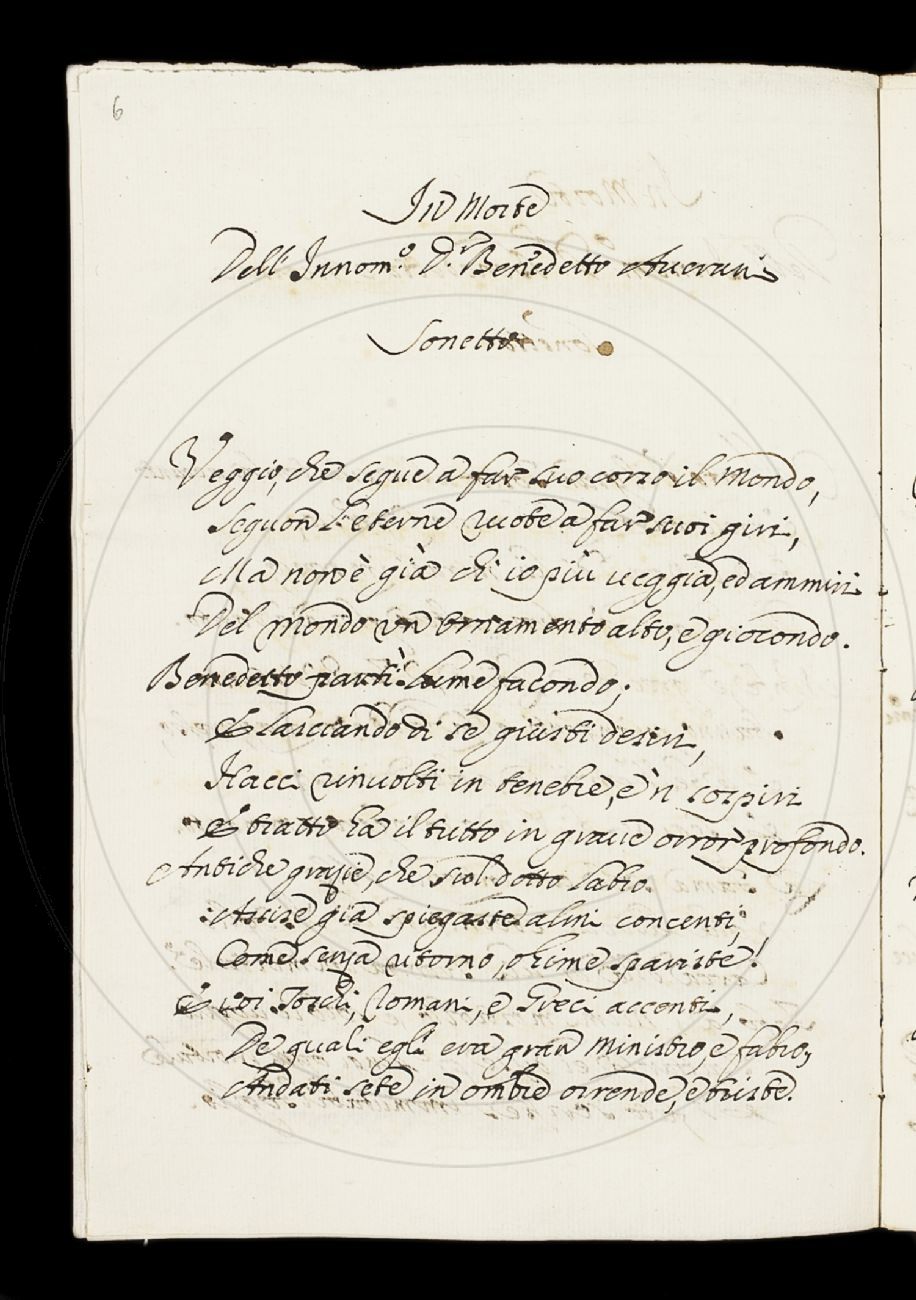 6
In Morte
Dell' Innom.º D.r Benedetto Averani
Sonetto
Veggio, che segue a far suo corso il Mondo,
Seguon l'eterne ruote a far suoi giri,
Ma non è già ch' io più veggia, ed ammiri
Del mondo un Ornamento alto, e giocondo.
Benedetto partì: lume facondo;
E lasciando di se giusti desiri,
Hacci rinvolti in tenebre, e 'n sospiri
E tratto ha il tutto in grave orror profondo.
Antiche grazie, che sul dotto labro
Assise già spiegaste almi concenti,
Come senza ritorno, ohime spariste!
E voi Toschi, Romani, e Greci accenti,
De quali egli era gran Ministro, e fabro,
Andati sete in ombre orrende, e triste.